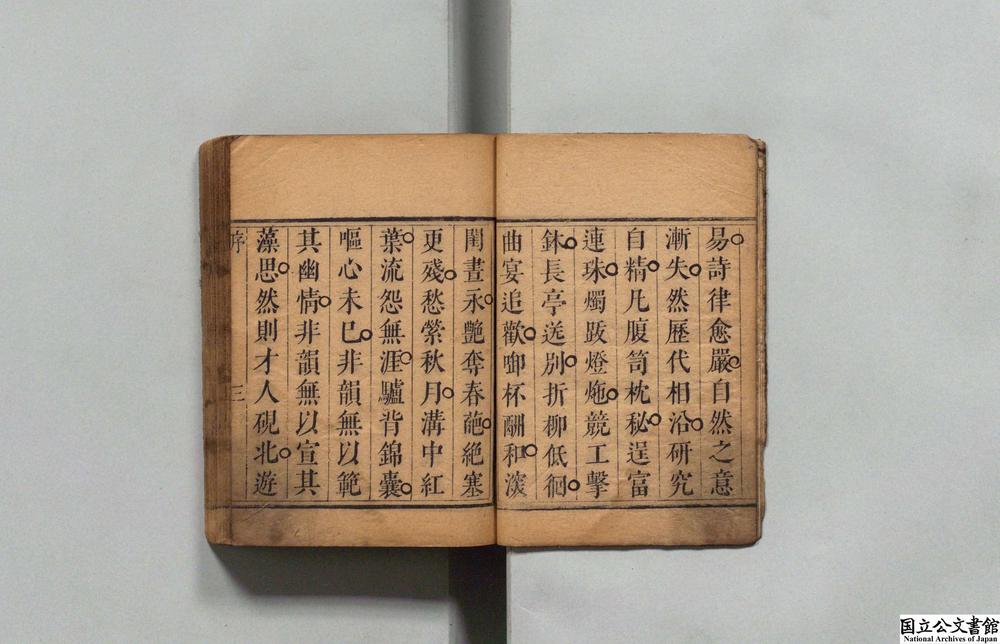 易詩律愈嚴自然之意
漸失然歷代相沿研究
自精凡腹笥枕秘逞富
連珠燭跋燈灺競工擊
鉢長亭送別折柳低徊
曲宴追歡啣杯酬和深
閨晝永艷奪春葩絕塞
更殘愁縈秋月溝中紅
葉流怨無涯驢背錦囊
嘔心未已非韻無以範
其幽情非韻無以宣其
藻思然則才人硯北遊
序
三
国立公文書館
National Archives of Japan